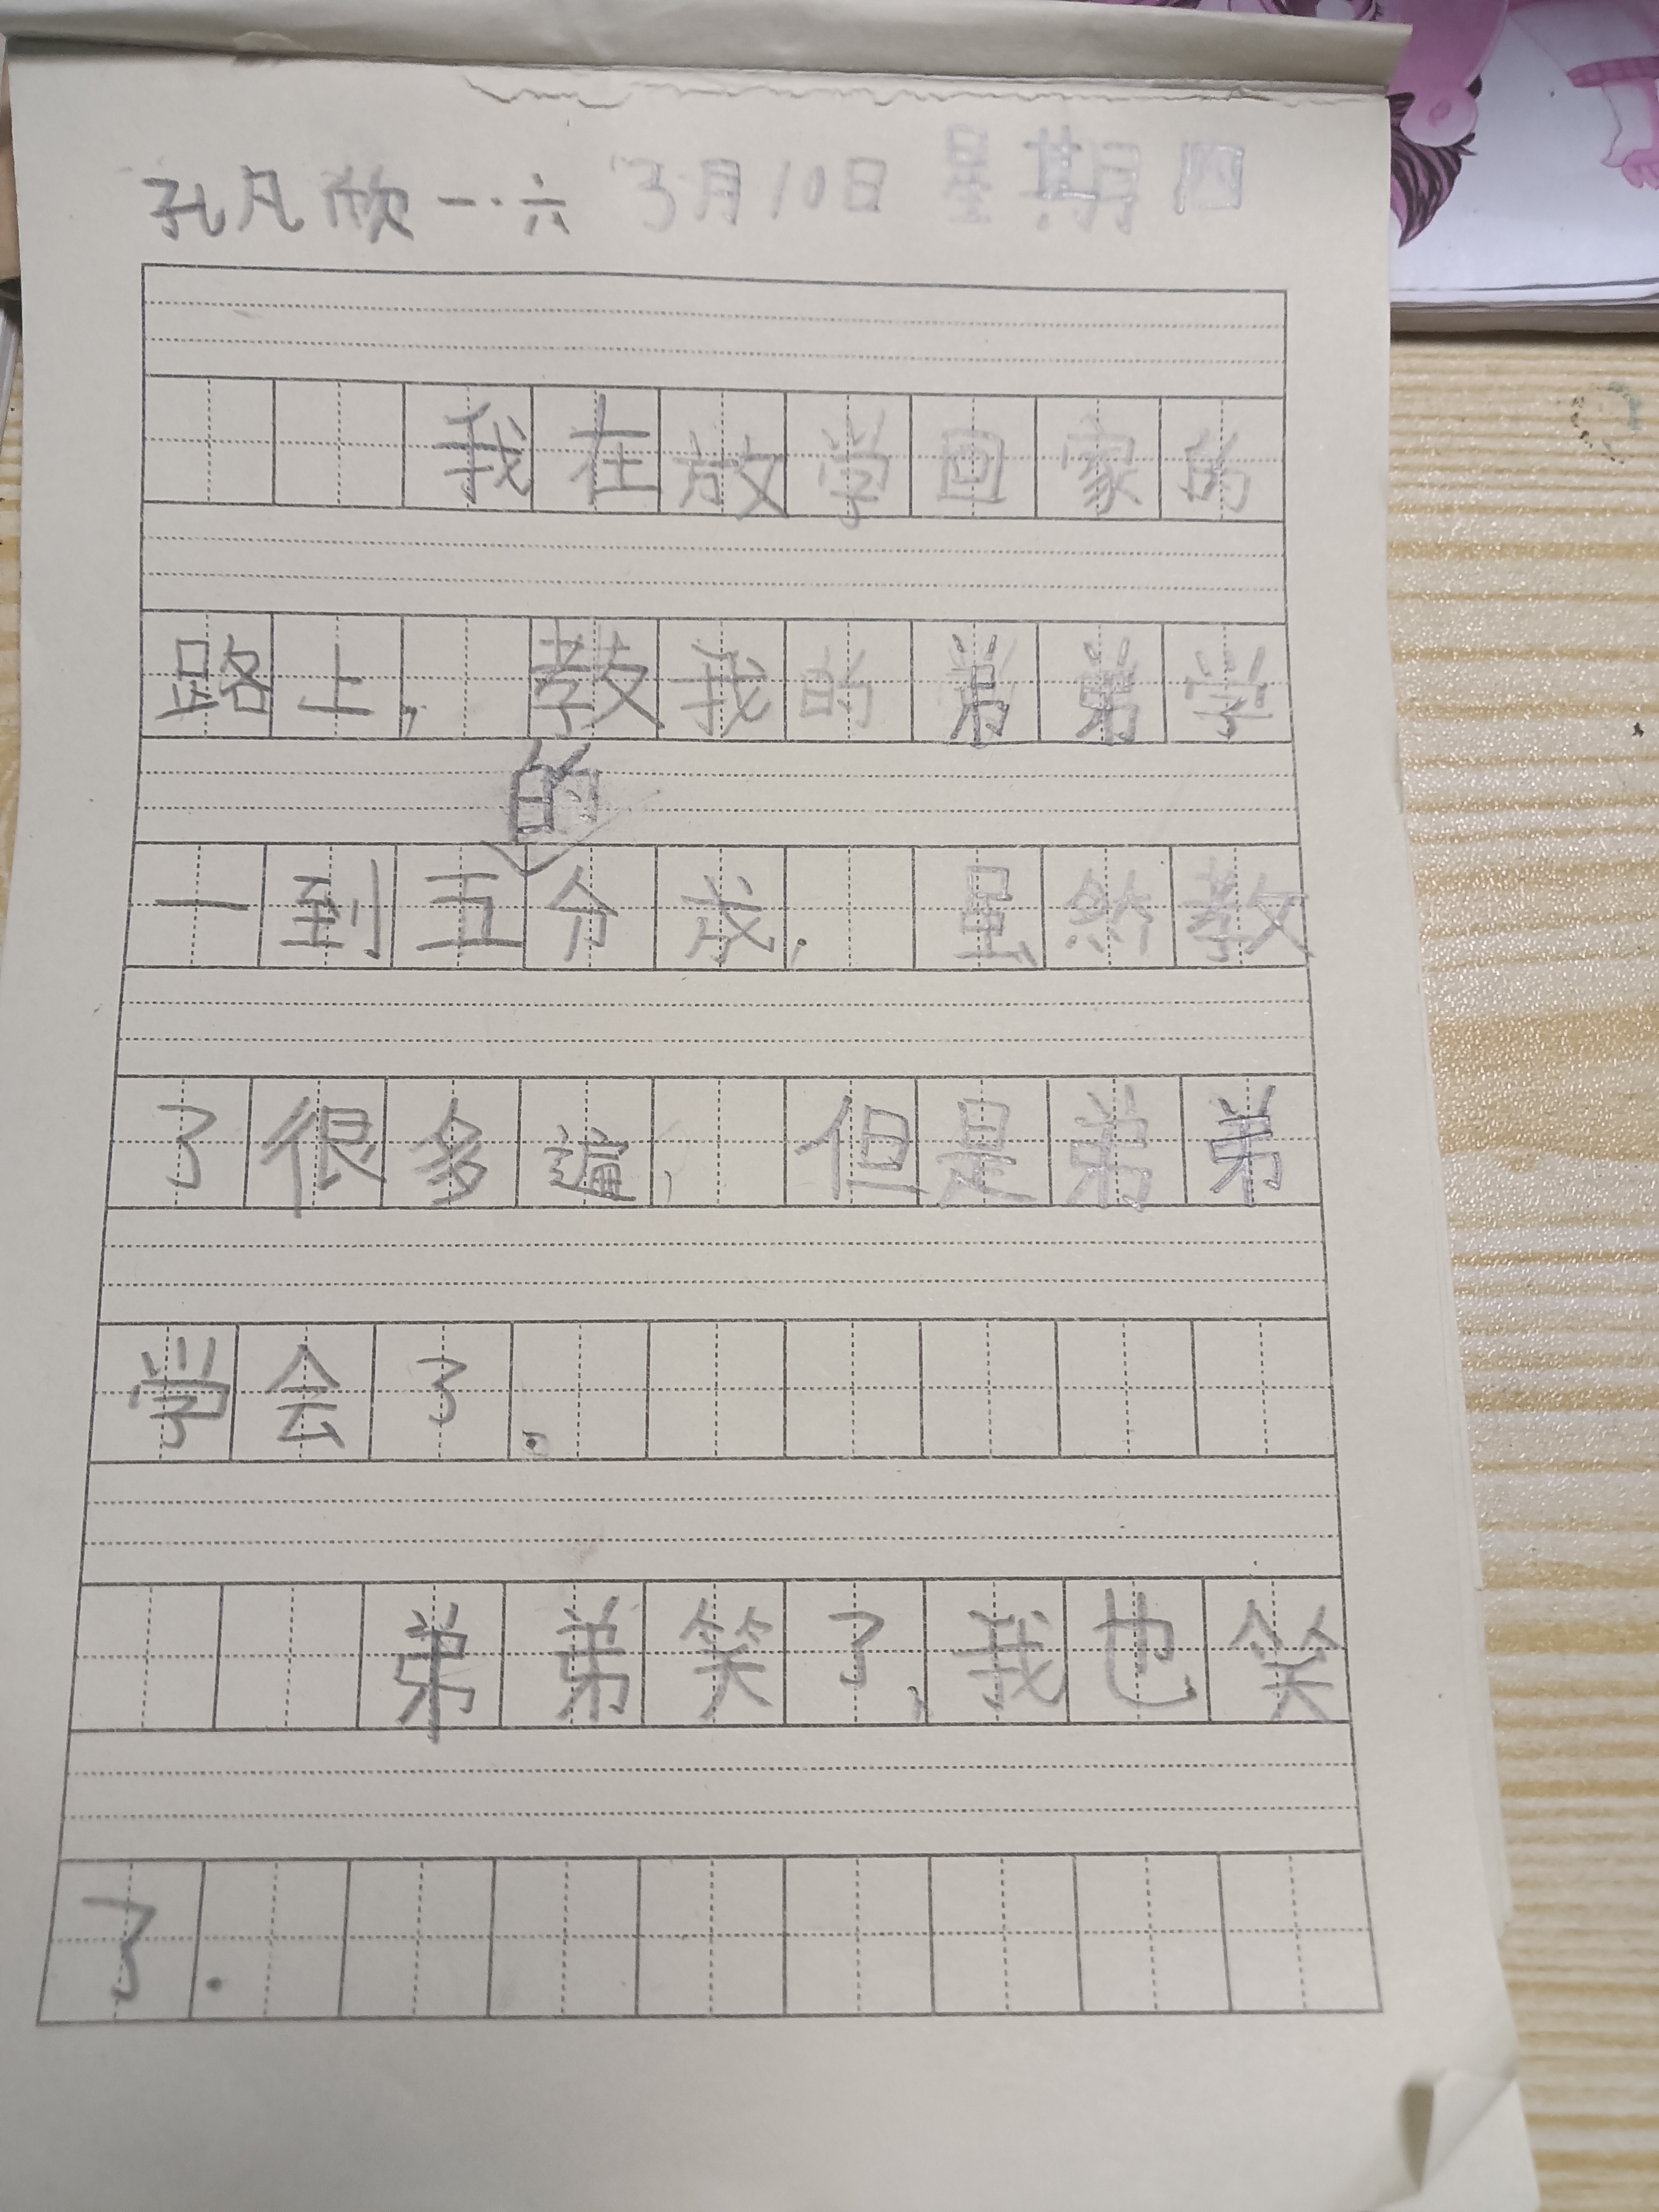 孔凡欣 一.六 3月10日 星期四
我在放学回家的
路上,教我的弟弟学
一到五的分成.虽然教
了很多遍,但是弟弟
学会了.
弟弟笑了,我也笑
了.